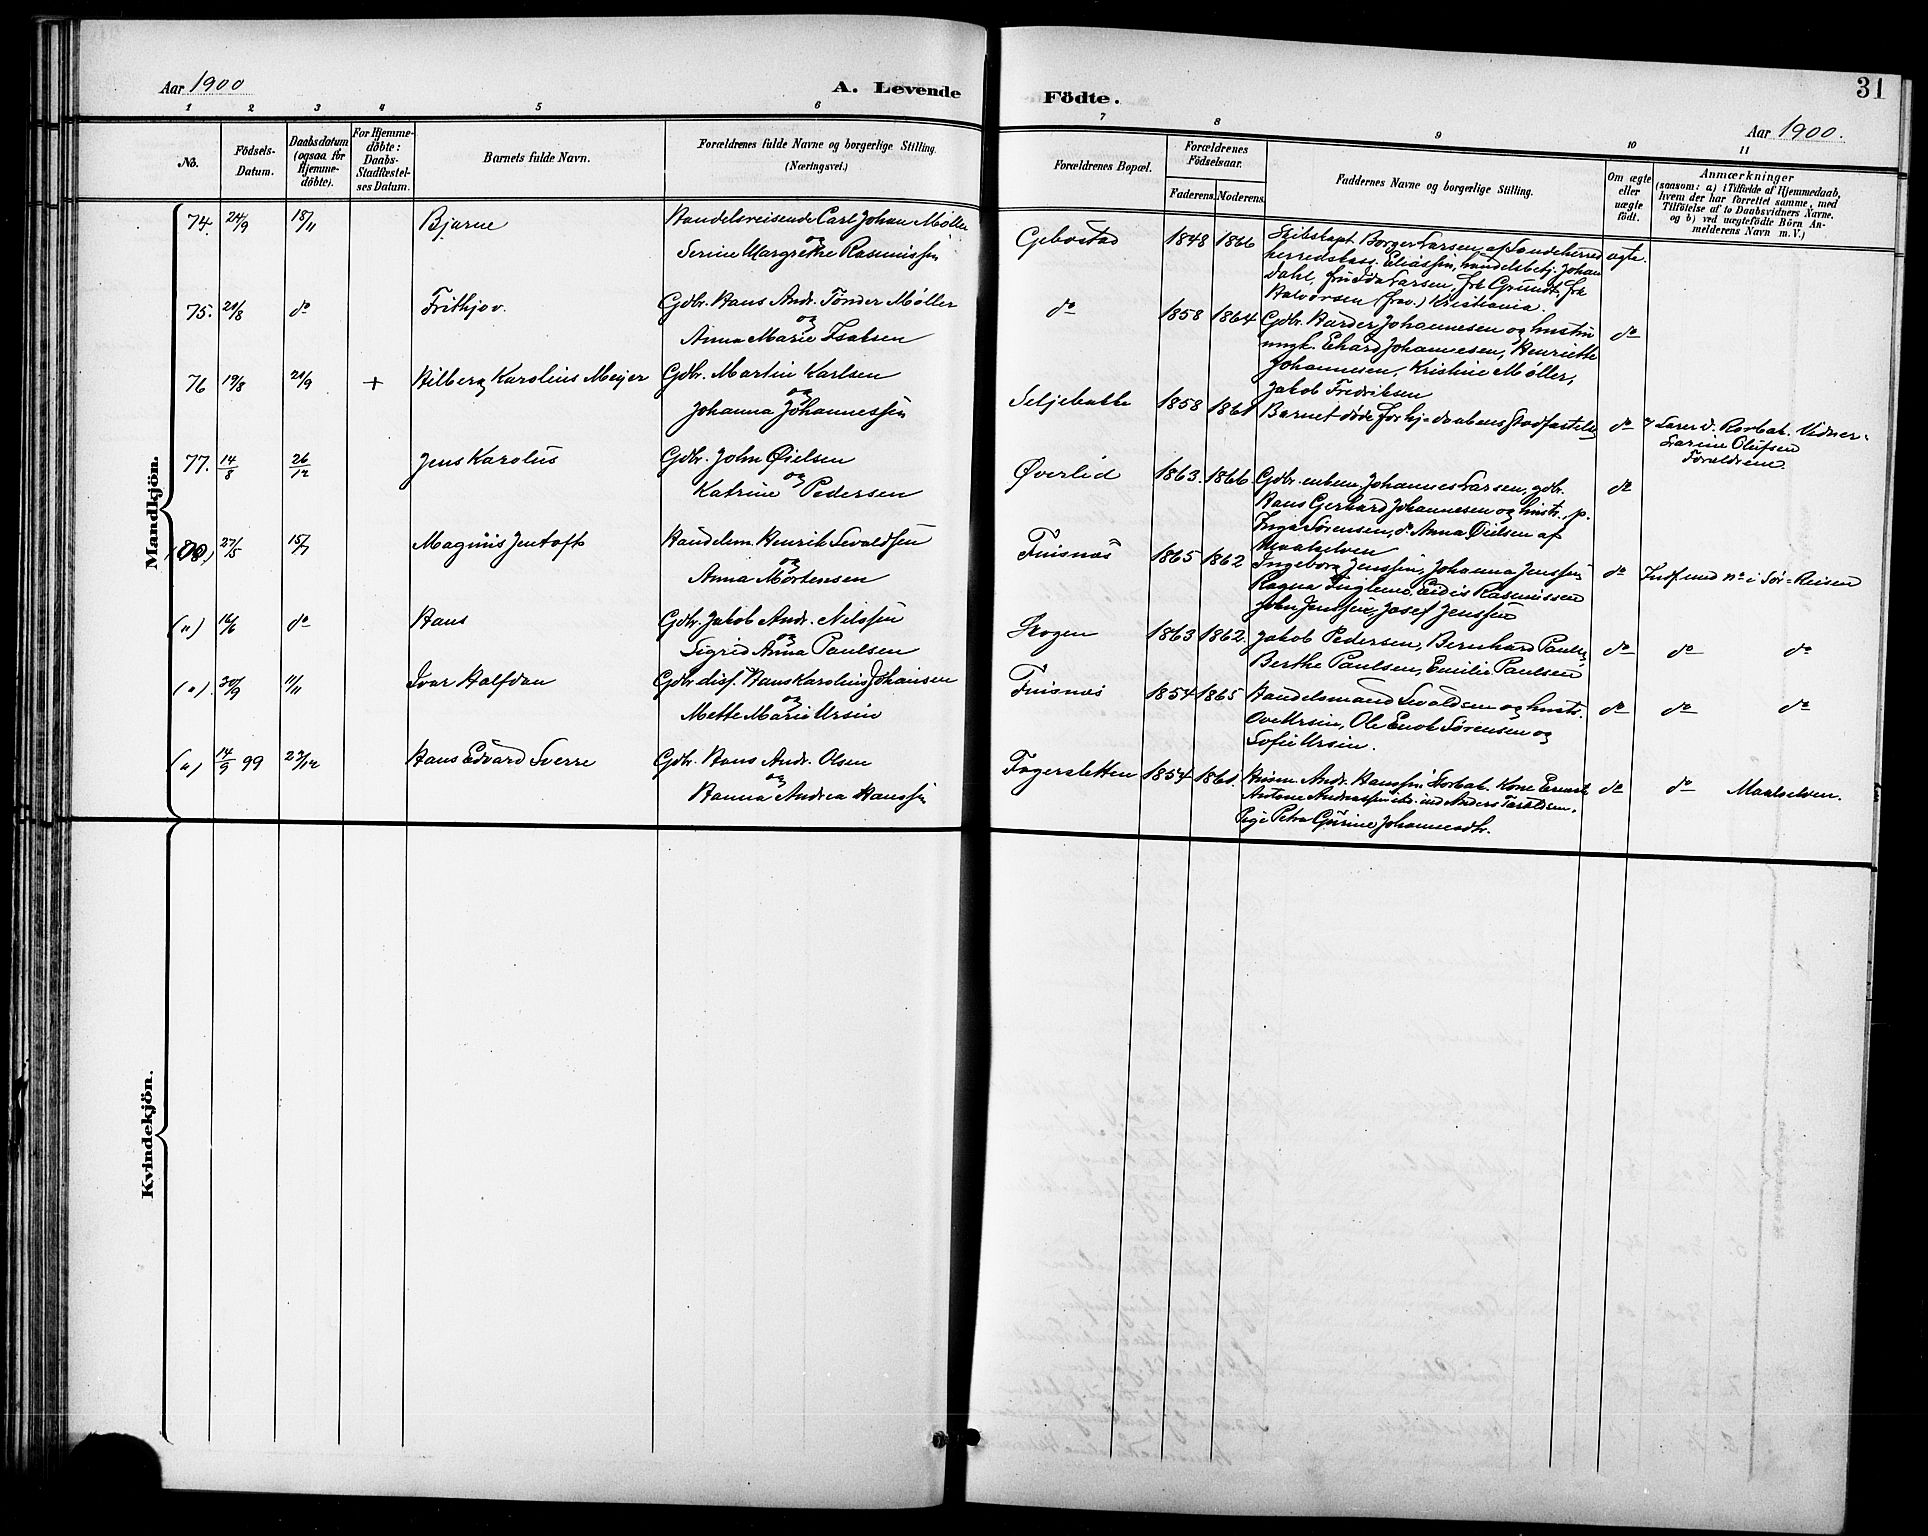 31
Aar 1900
A. Levende
Födte.
Aar 1900.
1 2 3 4 5 6 7 8 9 10 11
No.
Födsels-
Datum.
Daabsdatum
(ogsaa for
Hjemme-
döbte).
For Hjemme-
döbte:
Daabs-
Stadfæstel-
ses Datum.
Barnets fulde Navn.
Forældrenes fulde Navne og borgerlige Stilling.
(Næringsvei.)
Forældrenes Bopæl.
Forældrenes
Födselsaar.
Faderens. Moderens.
Faddernes Navne og borgerlige Stilling.
Om ægte
eller
uægte
födt.
Anmærkninger
(saasom: a) i Tilfælde af Hjemmedaab,
hvem der har forrettet samme, med
Tilföielse af to Daabsvidners Navne.
og b) ved uægtefödte Börn An-
melderens Navn m. V.)
Mandkjön.
74. 24/9 18/11 Bjarne Handelsreisende Carl Johan Møller
og
Serine Margrethe Rasmussen
Gebostad 1848 1866 Skibskapt. Borger Larsen af Sandeherred ægte.
herredskass. Eliassen, handelsbetj. Johan
Dahl, fru Ida Larsen, frk Grundt, frk
Halvorsen (frav.) Kristiania.
75. 21/8 do Frithjov. Gdbr. Hans Andr. Tønder Møller
og
Anna Marie Isaksen
do 1858 1864 Gdbr. Harder Johannesen og hustru do
ungk. Erhard Johannesen, Henriette
Johannesen, Kristine Møller,
Jakob Fredriksen
76 19/8 21/9 + Hilberg Karolius Meijer Gdbr. Martin Karlsen
og
Johanna Johannessen
Seljebakke 1858 1861 Barnet døde før hj-daabens Stadfæstelse do af Lærer d. Rorbak. Vidner-
Larine Olufsen
Forældrene
77. 14/8 26/12 Jens Karolus Gdbr. John Øielsen
og
Katrine Pedersen
Øverlid 1863. 1866 Gdbr. enkem. Johannes Larsen, gdbr. do
Hans Gerhard Johannesen og hustr., p.
Inga Sørensen, do Anna Øielsen af
Maalselven
27/5 15/7 Magnus Jentoft Handelsm. Henrik Sivaldsen
og
Anna Mortensen
Finsnæs 1865 1862 Ingeborg Jenssen, Johanna Jenssen do Indf. und no i Sør-Reisen
Ragna Fuglem, Eidis Rasmussen
John Jenssen, Josef Jenssen
(") 16/6 do Hans Gdbr. Jakob Andr. Nilssen
og
Sigrid Anna Paulsen
Skogen 1863 1862. Jakob Pedersen, Bernhard Paulsen, do do do
Berthe Paulsen, Emilie Paulsen
("). 30/9 11/11 Ivar Halfdan Gdbr. disp. Hans Karolius Johansen
og
Mette Marie Ursin
Finsnæs 1854 1865 Handelsmand Sivaldsen og hustr. do do do
Ove Ursin, Ole Enok Sørensen og
Sofie Ursin.
(") 14/9 99 27/12 Hans Edvard Sverre Gdbr. Hans Andr. Olsen
og
Hanna Andrea Hanssen
Fagersletten 1854 1861. Husm. Andr. Hanssen Storbak. Kone do do Maalselven.
Antone Anders Taraldsen.
Pige Petra Gurine Johannesdtr.
Kvindekjön.